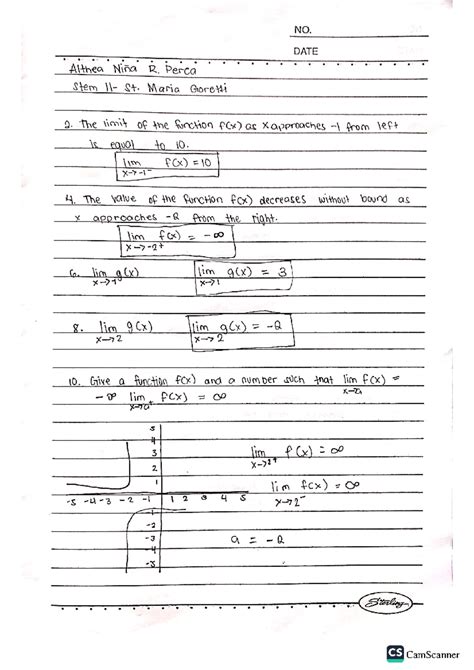 NO.
DATE
Althea Niña R. Perca
Stem 11- St. Maria Goretti
2. The limit of the function f(x) as x approaches -1 from left
is equal to 10.
lim f(x) = 10
x→-1⁻
4. The value of the function f(x) decreases without bound as
x approaches -2 from the right.
lim f(x) = -∞
x→-2+
6. lim g(x) lim g(x) = 3
x→1 x→1
8. lim g(x) lim g(x) = -2
x→2 x→2
10. Give a function f(x) and a number such that lim f(x) =
-∞ lim f(x) = ∞
x→a⁺
5
4
3
2
1
-5 -4 -3 -2 -1 1 2 3 4 5
-1
-2
-3
-4
-5
lim f(x) = ∞
x→2+
lim f(x) = ∞
x→2⁻
a = -2
Sterling
CS CamScanner